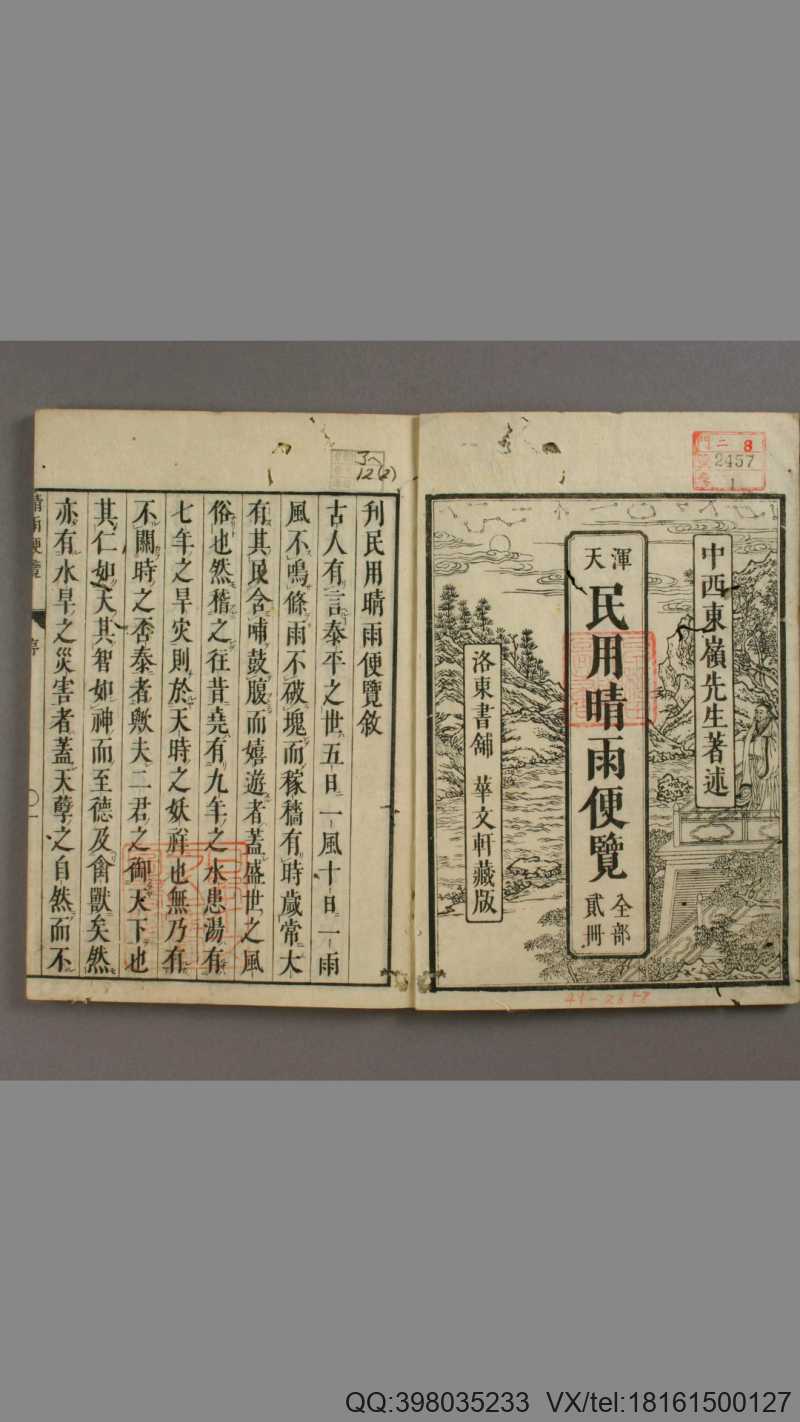 中西東嶺先生著述
渾天
民用晴雨便覽
全部
貳冊
洛東書舖 華文軒藏版
8
2457
1
刋民用晴雨便覽敘
古人有言泰平之世五日一風十日一雨
風不鳴條雨不破塊而稼穡有時歲常大
有其民含哺鼓腹而嬉遊者蓋盛世之風
俗也然稽之往昔堯有九年之水患湯有
七年之旱灾則於天時之妖祥也無乃有
不關時之否泰者歟夫二君之御天下也
其仁如天其智如神而至德及禽獸矣然
亦有水旱之災害者蓋天孽之自然而不
晴雨便覽 序
12(2)
QQ:398035233 VX/tel:18161500127